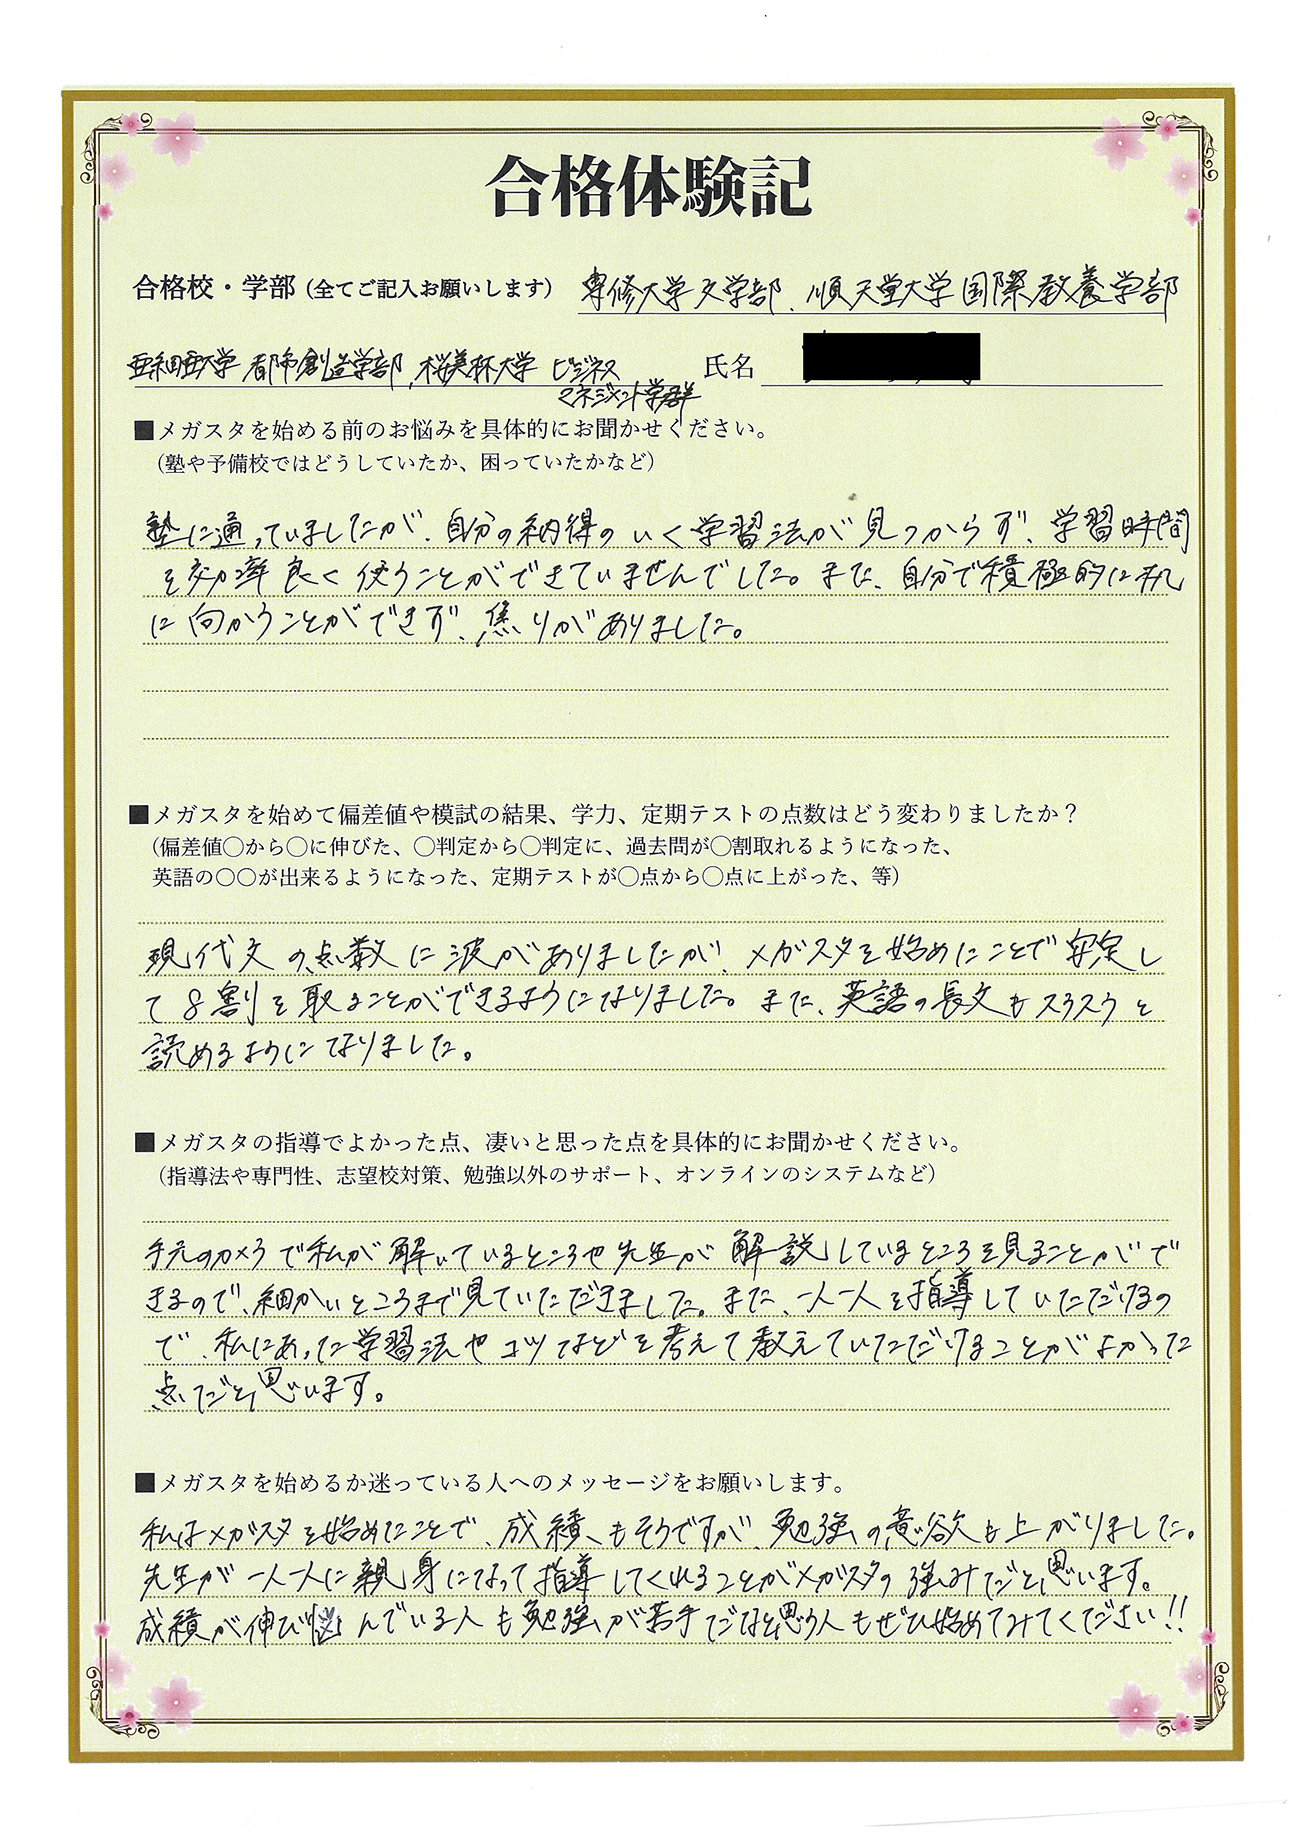 合格体験記
合格校・学部（全てご記入お願いします） 専修大学文学部、順天堂大学国際教養学部
亜細亜大学 都市創造学部、桜美林大学 ビジネス
マネジメント学群
氏名
■メガスタを始める前のお悩みを具体的にお聞かせください。
（塾や予備校ではどうしていたか、困っていたかなど）
塾に通っていましたが、自分の納得のいく学習法が見つからず、学習時間
を効率良く使うことができていませんでした。また、自分で積極的に机
に向かうことができず、焦りがありました。
■メガスタを始めて偏差値や模試の結果、学力、定期テストの点数はどう変わりましたか？
（偏差値〇から〇に伸びた、〇判定から〇判定に、過去問が〇割取れるようになった、
英語の〇〇が出来るようになった、定期テストが〇点から〇点に上がった、等）
現代文の点数に波がありましたが、メガスタを始めたことで安定し
て8割を取ることができるようになりました。また、英語の長文もスラスラと
読めるようになりました。
■メガスタの指導でよかった点、凄いと思った点を具体的にお聞かせください。
（指導法や専門性、志望校対策、勉強以外のサポート、オンラインのシステムなど）
手元のカメラで私が解いているところや先生が解説しているところを見ることがで
きるので、細かいところまで見ていただきました。また、一人一人を指導していただけるの
で、私にあった学習法やコツなどを考えて教えていただけることがよかった
点だと思います。
■メガスタを始めるか迷っている人へのメッセージをお願いします。
私はメガスタを始めたことで、成績もそうですが、勉強の意欲も上がりました。
先生が一人一人に親身になって指導してくれることがメガスタの強みだと思います。
成績が伸び悩んでいる人も勉強が苦手だなと思う人もぜひ始めてみてください!!